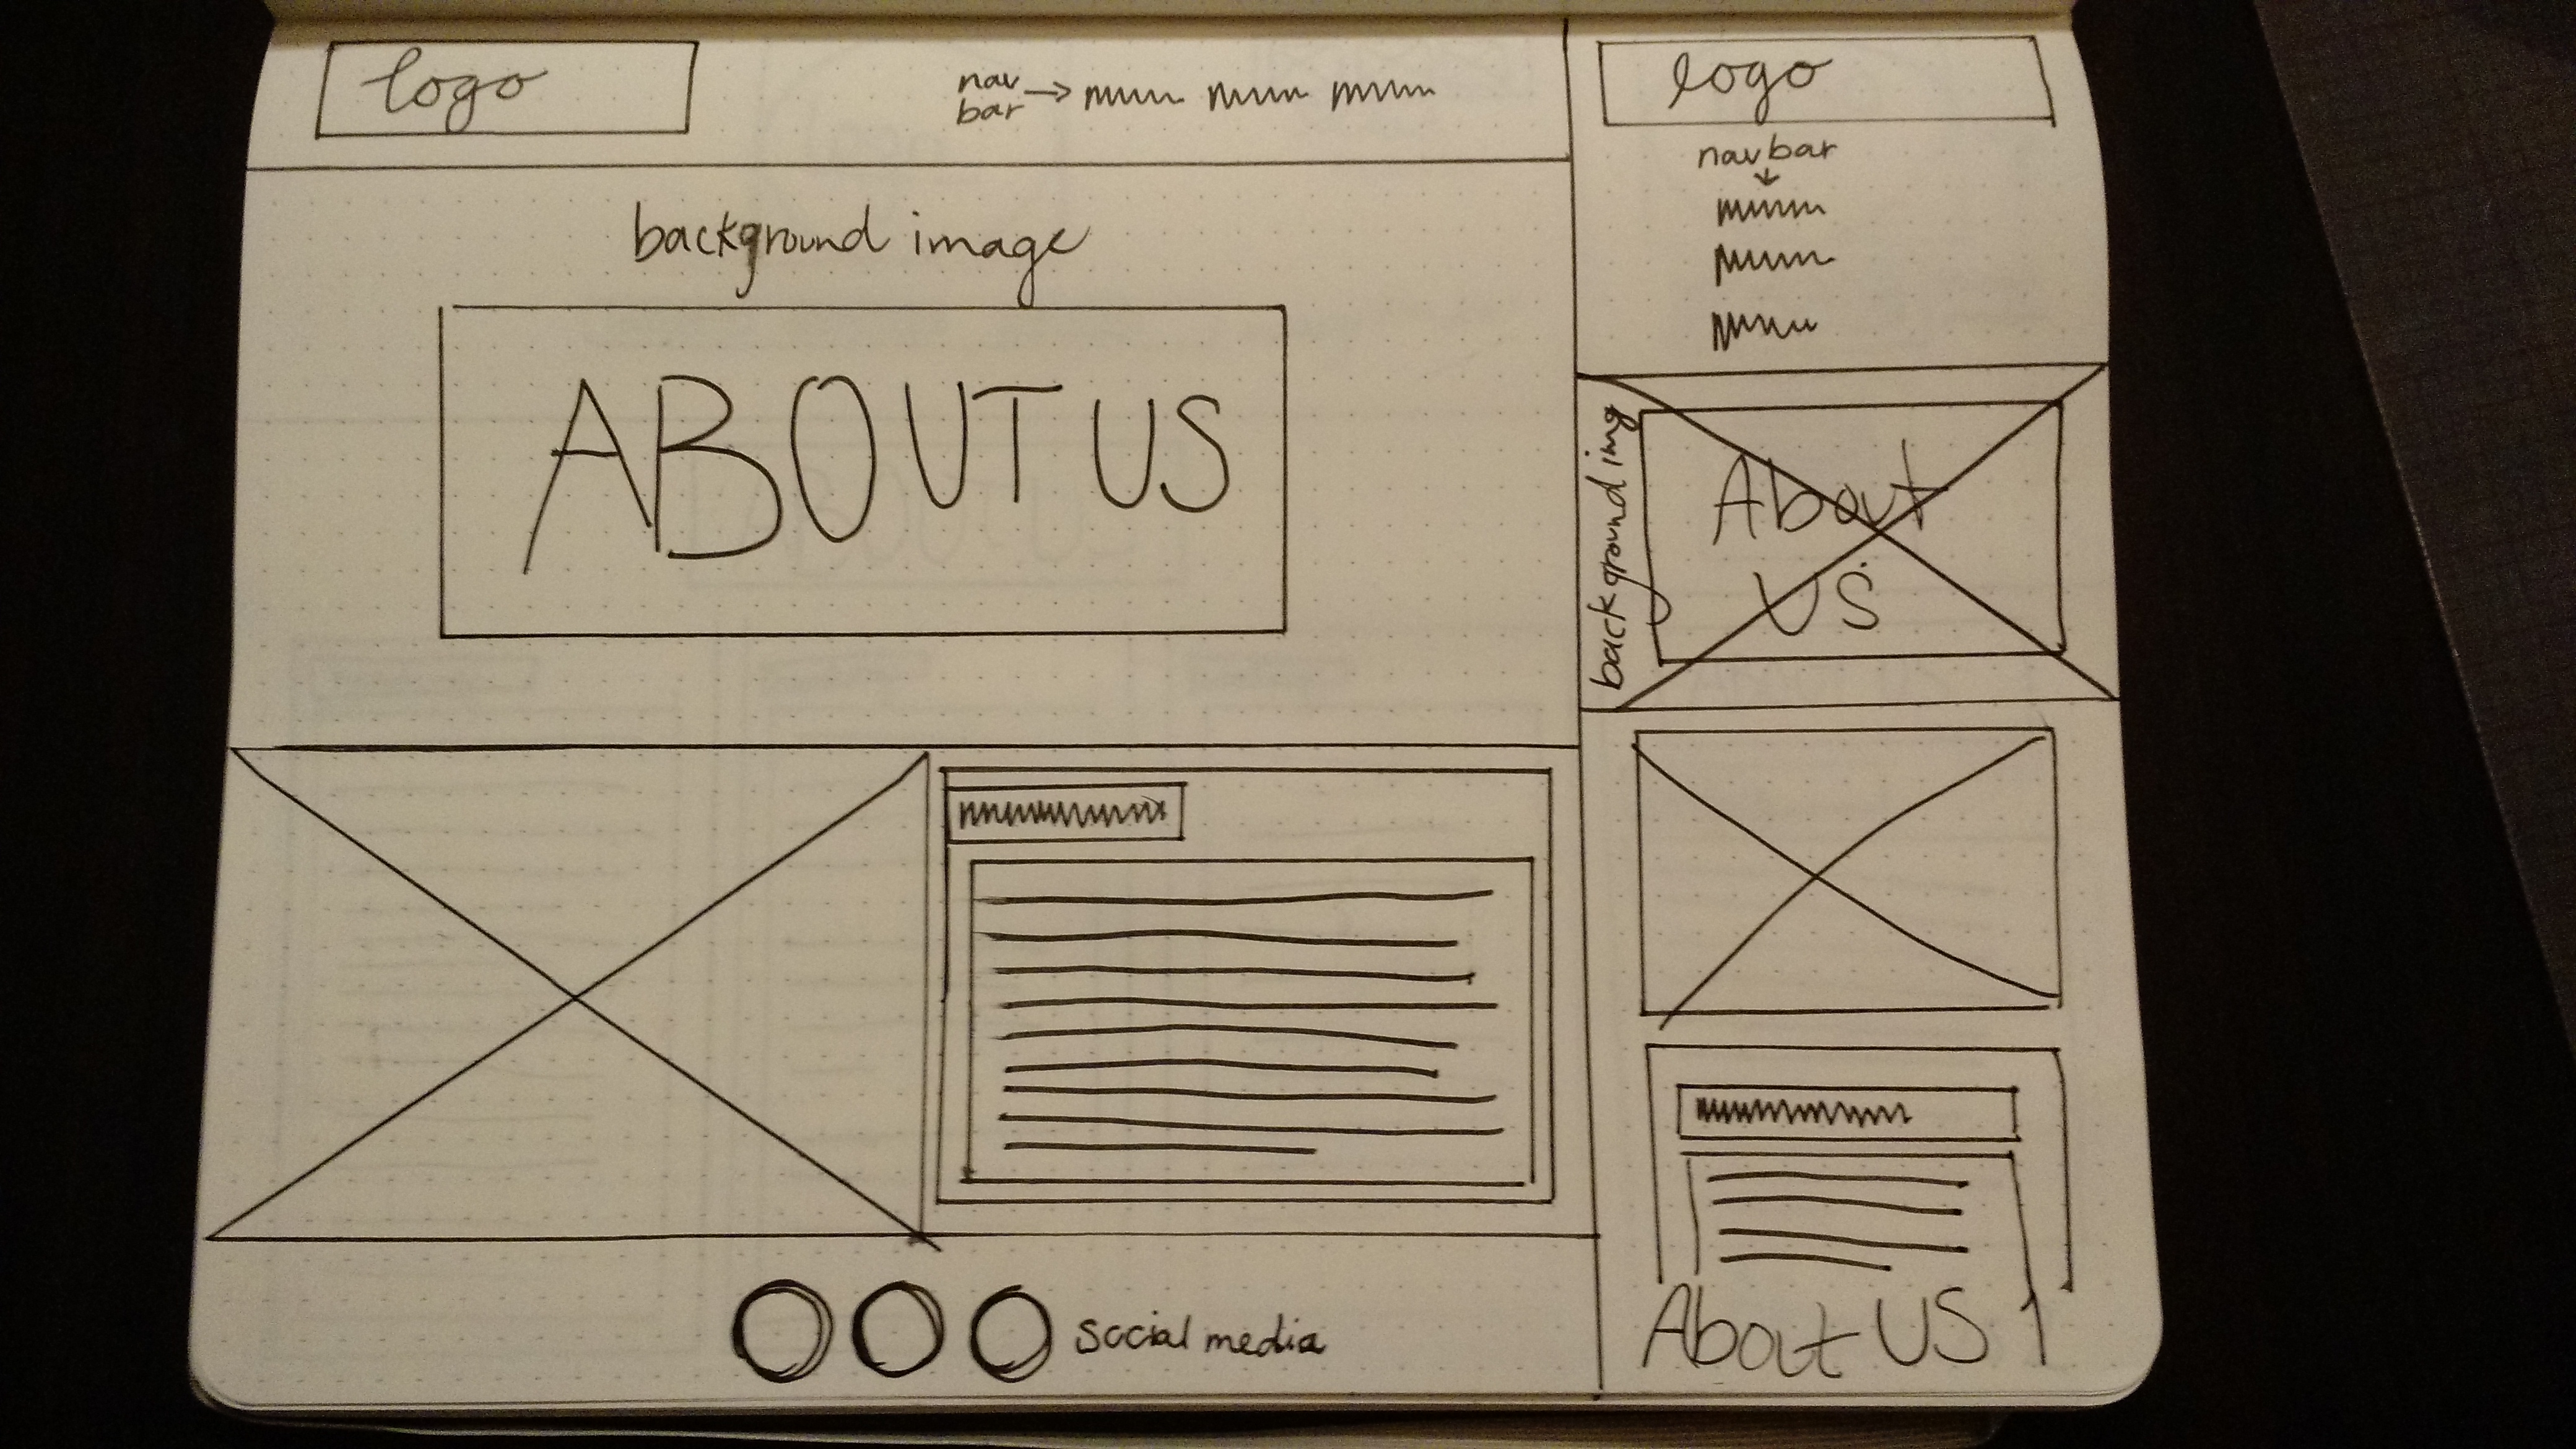 logo
nav
bar
background image
ABOUT US
social media
logo
navbar
background img
About
US
About US 1